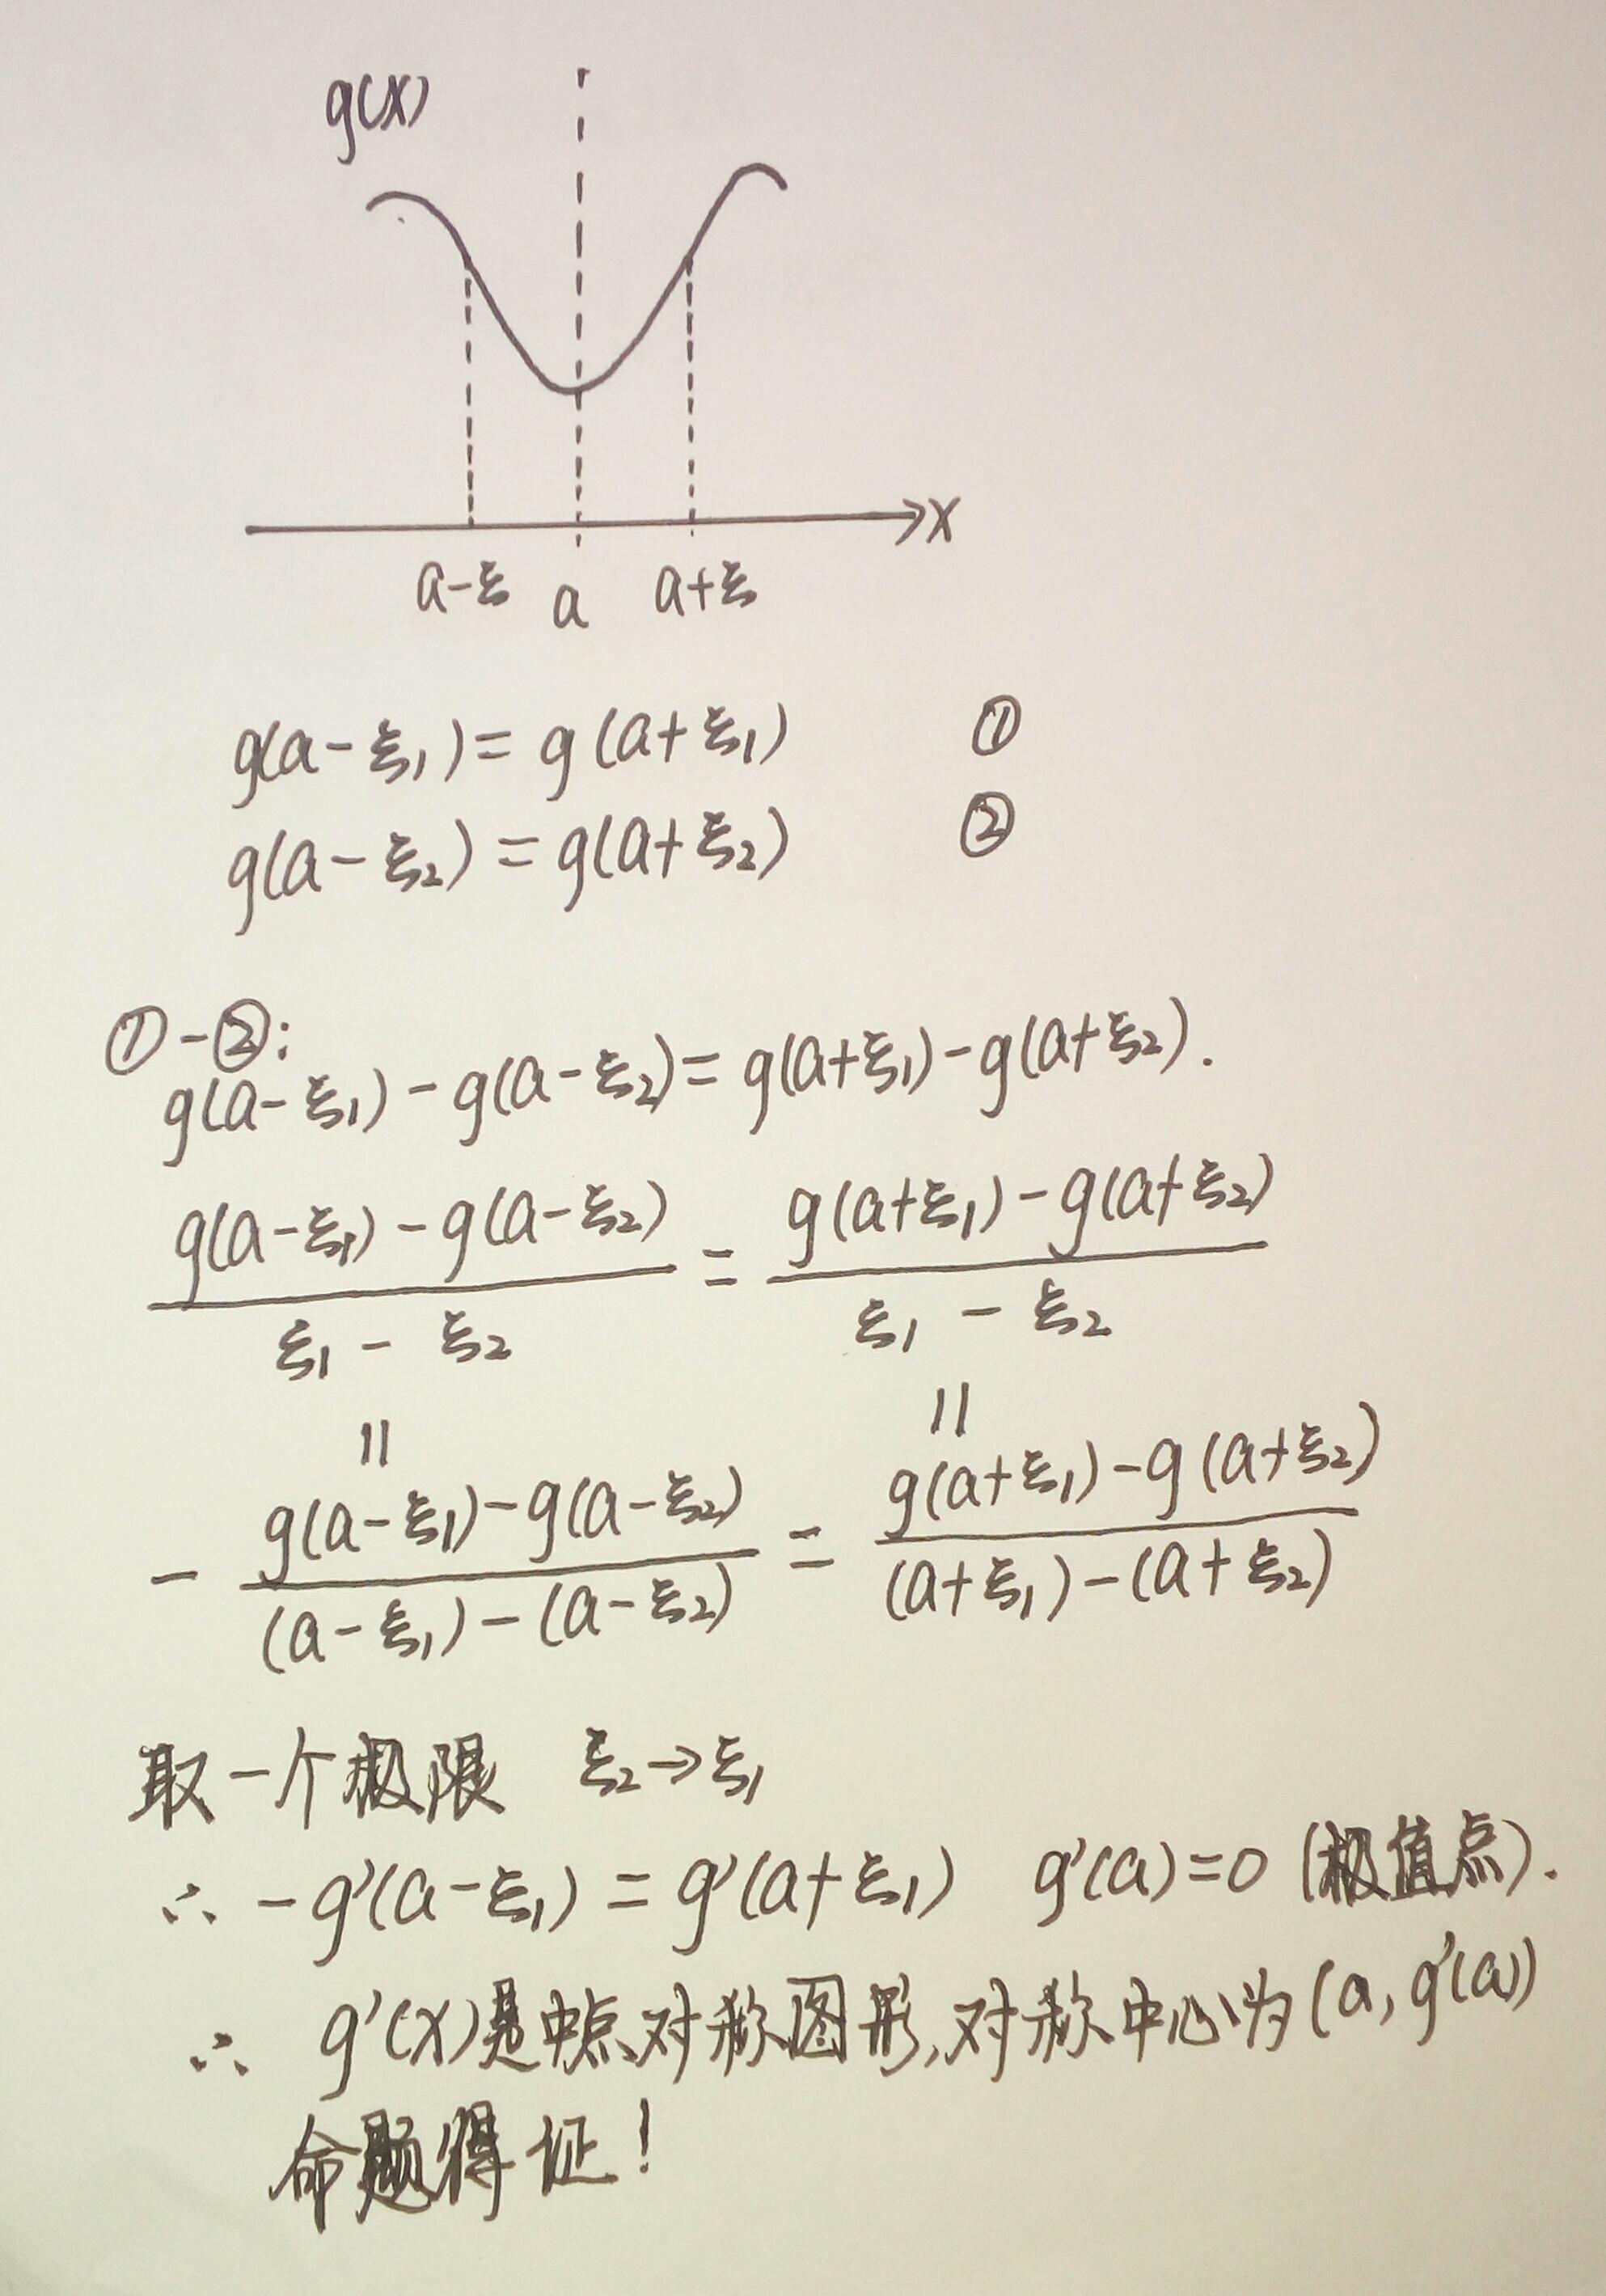 g(x)
x
a-ξ a a+ξ
g(a-ξ₁)=g(a+ξ₁) ①
g(a-ξ₂)=g(a+ξ₂) ②
①-②:
g(a-ξ₁)-g(a-ξ₂)=g(a+ξ₁)-g(a+ξ₂).
g(a-ξ₁)-g(a-ξ₂) = g(a+ξ₁)-g(a+ξ₂)
ξ₁-ξ₂ ξ₁-ξ₂
= =
- g(a-ξ₁)-g(a-ξ₂) = g(a+ξ₁)-g(a+ξ₂)
(a-ξ₁)-(a-ξ₂) (a+ξ₁)-(a+ξ₂)
取一个极限 ξ₂→ξ₁
∴ -g'(a-ξ₁)=g'(a+ξ₁) g'(a)=0 (极值点).
∴ g'(x)是中点对称图形,对称中心为(a,g'(a))
命题得证!